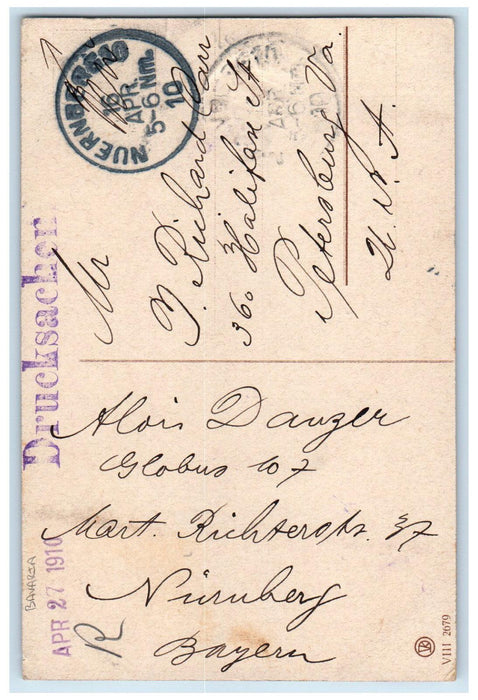 NUERNBERG
16
APR.
5-6 Nm.
10
APR.
5-6 Nm.
10
Drucksachen
Mr
J. Richard Carr
360 Halifax St
Petersburg, Va.
U. S. A.
Alois Danzer
Globus 107
Mart. Richterstr. 37
Nürnberg
Bayern
BAVARIA
APR 27 1910
R
VIII 2679